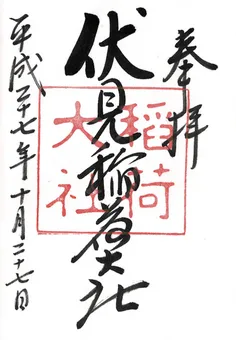 奉拝
伏見稲荷大社
稲荷大社
平成二十七年十月二十七日